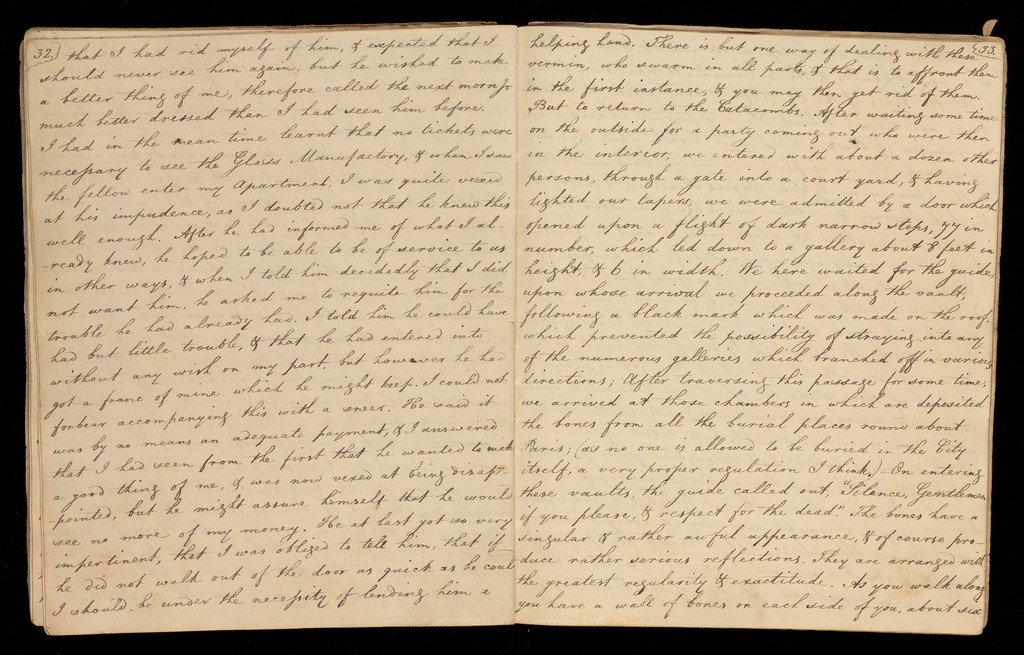 32.
that I had rid myself of him, & expected that I
should never see him again, but he wished to make
a better thing of me, therefore called the next morng
much better dressed than I had seen him before.
I had in the mean time learnt that no tickets were
necessary to see the Glass Manufactory, & when I saw
the fellow enter my Apartment, I was quite vexed
at his impudence, as I doubted not that he knew this
well enough. After he had informed me of what I al-
-ready knew, he hoped to be able to be of service to us
in other ways, & when I told him decidedly that I did
not want him, he asked me to requite him for the
trouble he had already had. I told him he could have
had but little trouble, & that he had entered into
without any wish on my part, but however he had
got a franc of mine which he might keep. I could not
forbear accompanying this with a sneer. He said it
was by no means an adequate payment, & I answered
that I had seen from the first that he wanted to make
a good thing of me, & was now vexed at being disap-
-pointed, but he might assure himself that he would
see no more of my money. He at last got so very
impertinent, that I was obliged to tell him, that if
he did not walk out of the door as quick as he could
I should be under the necessity of lending him a
33.
helping hand. There is but one way of dealing with these
vermin, who swarm in all parts, & that is to affront them
in the first instance, & you may then get rid of them.
But to return to the Catacombs. After waiting some time
on the outside for a party coming out, who were then
in the interior, we entered with about a dozen other
persons, through a gate into a court yard, & having
lighted our tapers, we were admitted by a door which
opened upon a flight of dark narrow steps, 77 in
number, which led down to a gallery about 8 feet in
height, & 6 in width. We here waited for the guide,
upon whose arrival we proceeded along the vault,
following a black mark which was made on the roof-
which prevented the possibility of straying into any
of the numerous galleries which branched off in various
directions; After traversing this passage for some time,
we arrived at those chambers in which are deposited
the bones from all the burial places round about
Paris; (as no one is allowed to be buried in the City
itself, a very proper regulation I think.) On entering
these vaults, the guide called out, "Silence, Gentlemen
if you please, & respect for the dead." The bones have a
singular & rather awful appearance, & of course pro-
duce rather serious reflections. They are arranged with
the greatest regularity & exactitude. As you walk along
you have a wall of bones on each side of you, about six